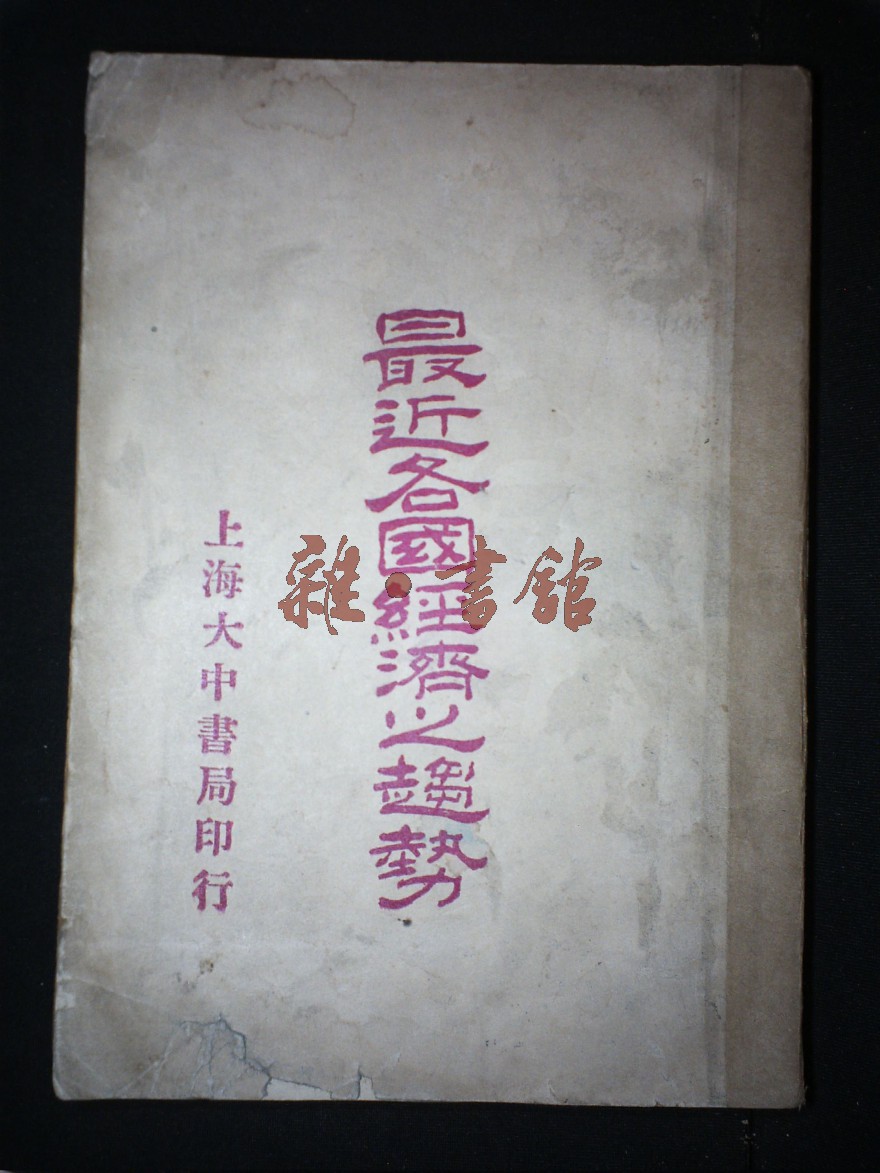 最近各國經濟之趨勢
上海大中書局印行
雜·書館